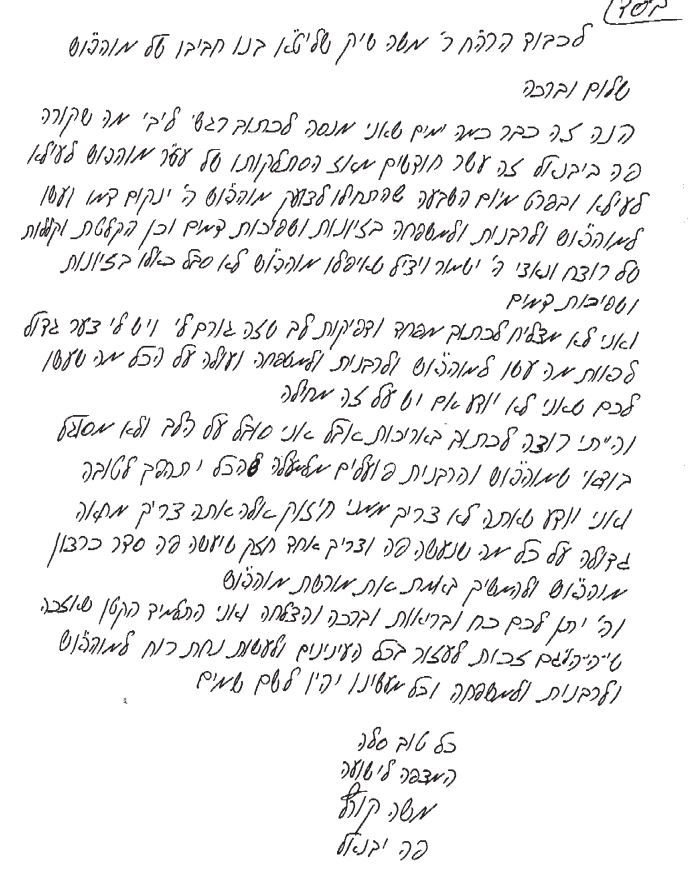 בס"ד
לכבוד הרה"ח ר' משה שיק שליט"א בנו חביבו של מוהרא"ש
שלום וברכה
הנה זה כבר כמה ימים שאני מנסה לכתוב רגשי ליבי מה שקורה
פה ביבנאל זה עשר חודשים מאז הסתלקותו של עט"ר מוהרא"ש לעילא
לעילא ובפרט מיום השבעה שהתחילו לצועק מוהרא"ש ה' ינקום דמו ועשו
למוהרא"ש ולרבנית ולמשפחה בזיונות ושפיכות דמים וכן הקלטת וקללות
של רוצח ונאצי ה' ישמור ויציל שאיפלו מוהרא"ש לא סבל כאלו בזיונות
ושפיכות דמים
ואני לא מצליח לכתוב מפחד ודפיקות לב שזה גורם לי ויש לי צער גדול
לראות מה עשו למוהרא"ש ולרבנית ולמשפחה ועולה על הכל מה שעשו
לכם שאני לא יודע אם יש על זה מחילה
והייתי רוצה לכתוב באריכות אבל אני סובל על הלב ולא מסוגל
בודאי שמוהרא"ש והרבנית פועלים מלמעלה שהכל יתהפך לטובה
ואני יודע שאתה לא צריך ממני חיזוק אלה אתה צריך מחאה
גדולה על כל מה שנעשה פה וצריך אחד חזק שיעשה פה סדר כרצון
מוהרא"ש ולהמשיך באמת את מורשת מוהרא"ש
וה' יתן לכם כח ובריאות וברכה והצלחה ואני התלמיד הקטן שאזכה
שיהיה לי גם זכות לעזור בכל העינינים ולעשות נחת רוח למוהרא"ש
ולרבנית ולמשפחה וכל מעשינו יהיו לשם שמים
כל טוב סלה
המצפה לישועה
משה
פה יבנאל